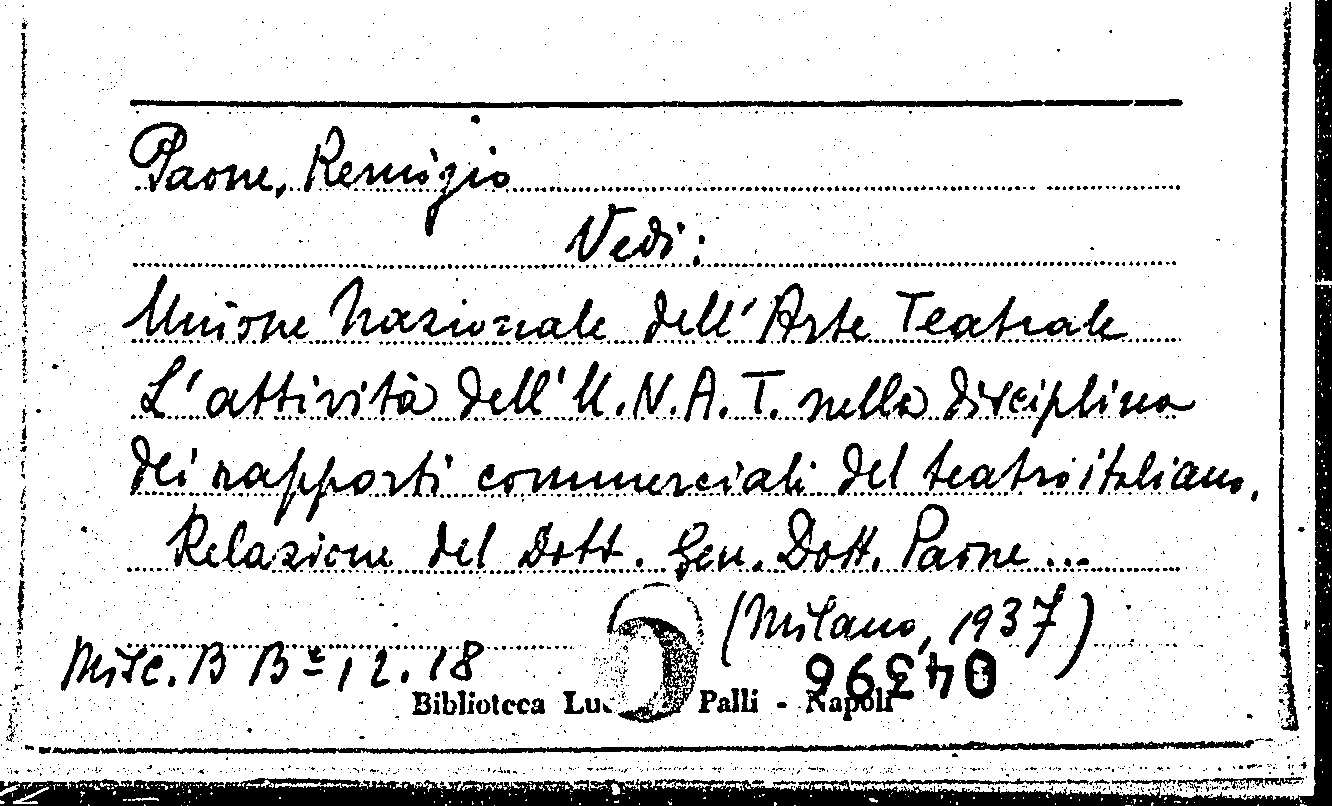 Paone, Remigio
Vedi:
Unione Nazionale dell'Arte Teatrale
L'attività dell'U.N.A.T. nella disciplina
dei rapporti commerciali del teatro italiano.
Relazione del Dott. Gen. Dott. Paone...
(Milano, 1937)
Misc. B B= 12.18
04396
Biblioteca Palli - Napoli